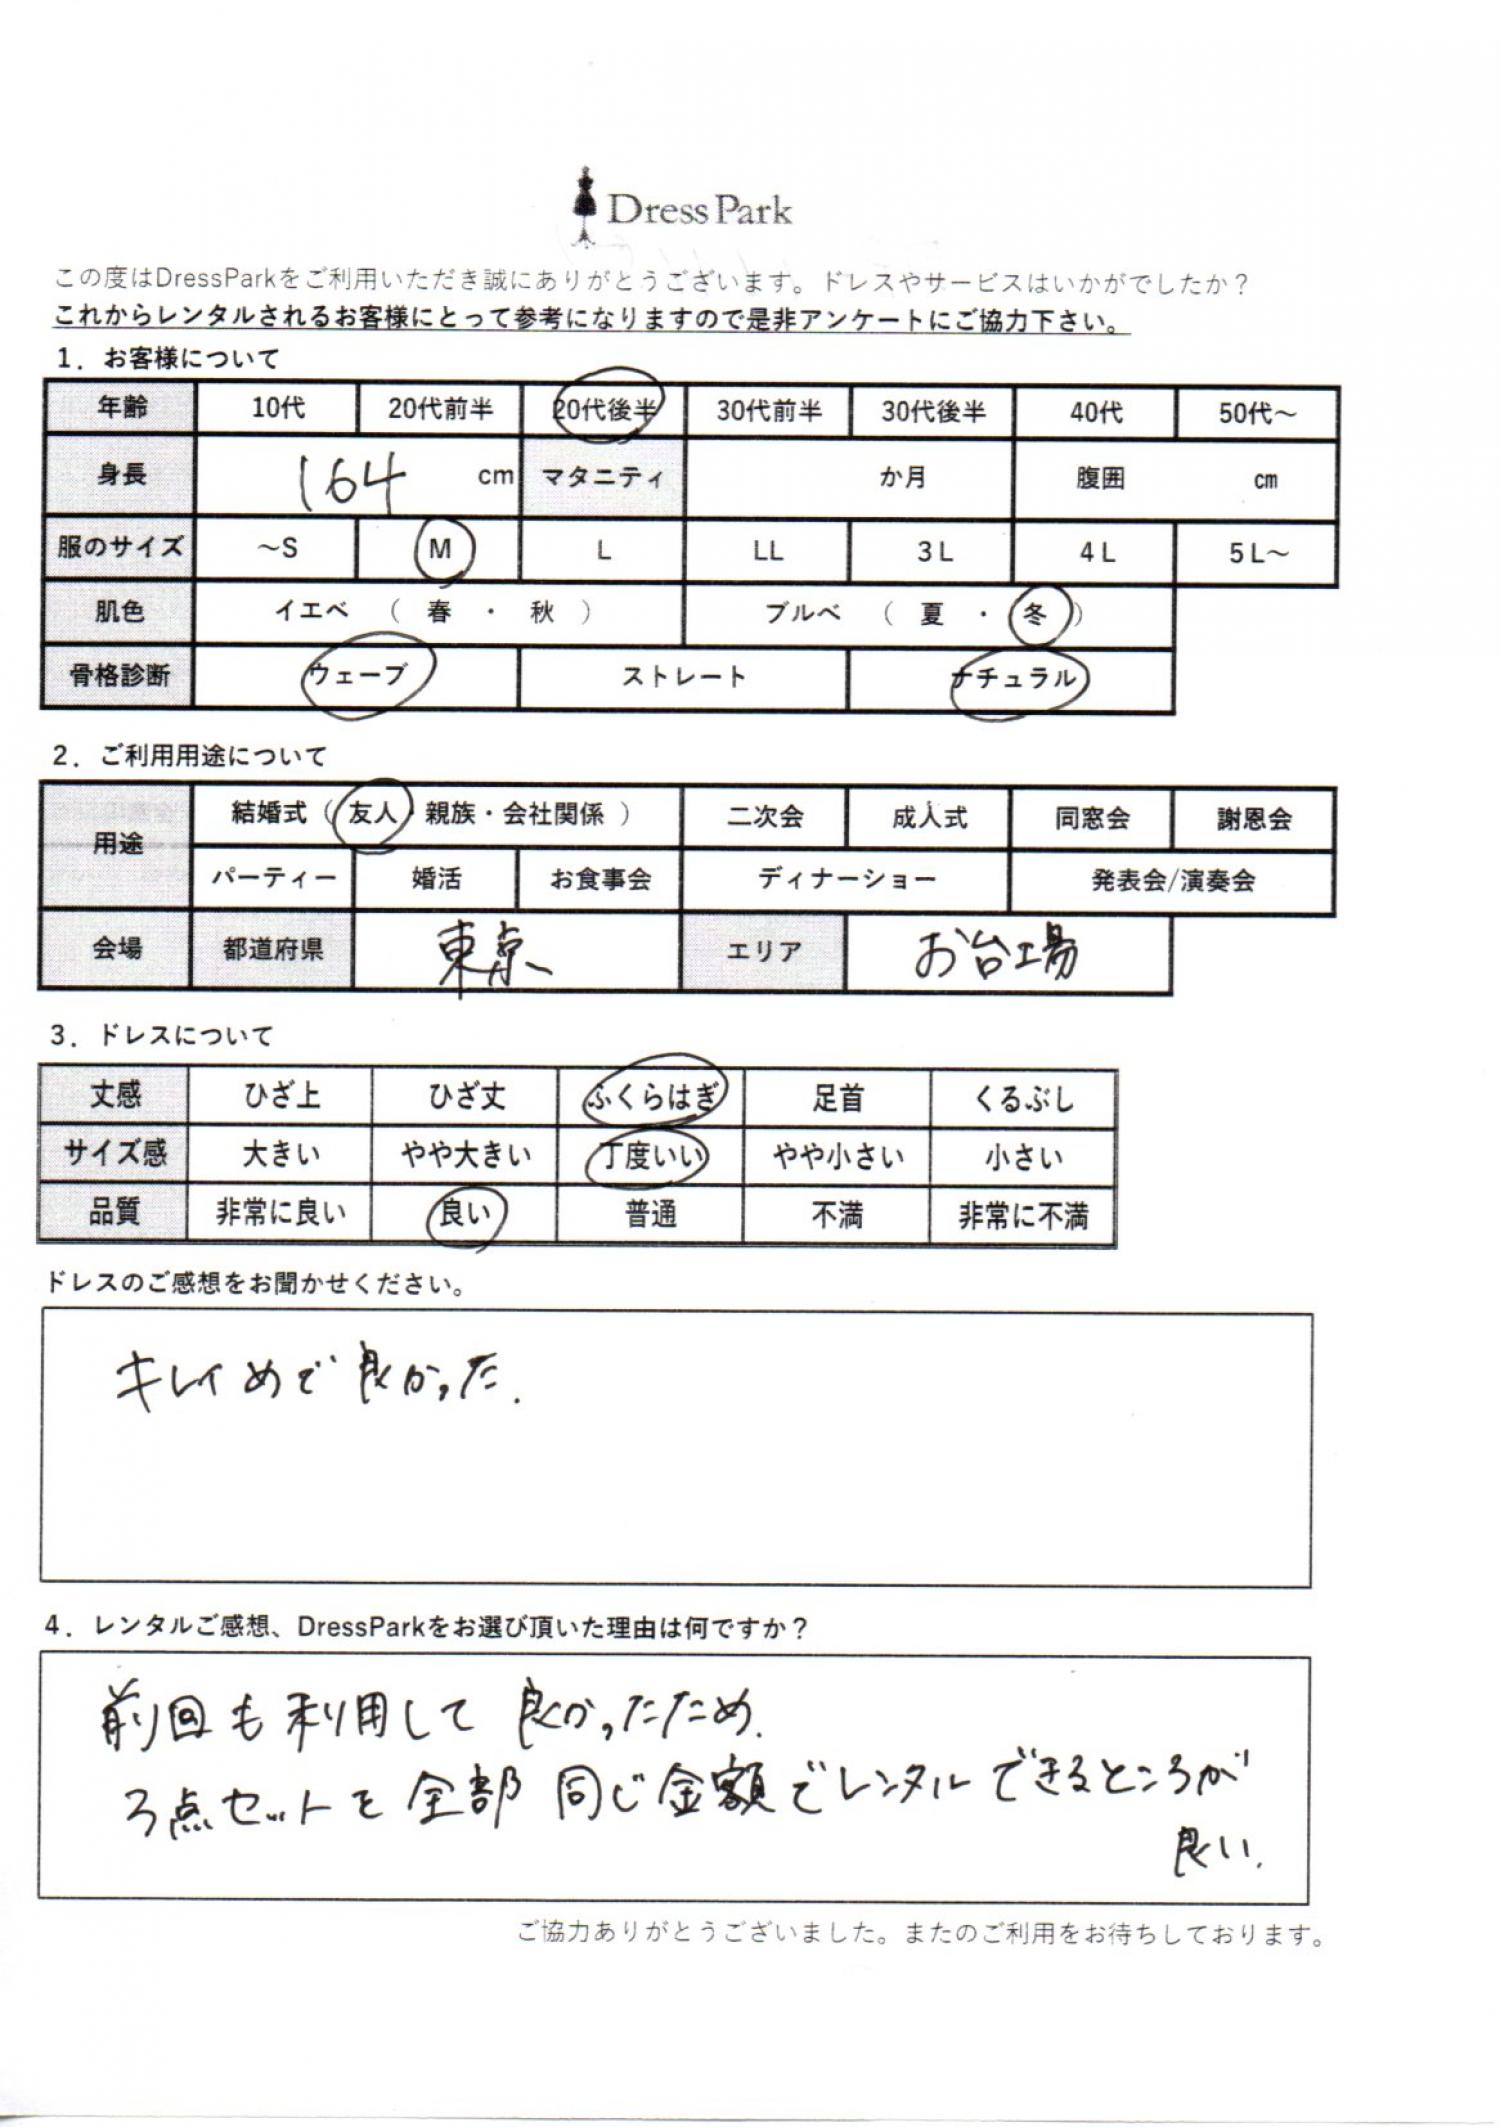 Dress Park
この度はDressParkをご利用いただき誠にありがとうございます。ドレスやサービスはいかがでしたか？
これからレンタルされるお客様にとって参考になりますので是非アンケートにご協力下さい。
1．お客様について
年齢 10代 20代前半 20代後半 30代前半 30代後半 40代 50代～
身長 164 cm マタニティ か月 腹囲 cm
服のサイズ ～S M L LL 3L 4L 5L～
肌色 イエベ （ 春 ・ 秋 ） ブルベ （ 夏 ・ 冬 ）
骨格診断 ウェーブ ストレート ナチュラル
2．ご利用用途について
用途 結婚式（ 友人・親族・会社関係 ） 二次会 成人式 同窓会 謝恩会
パーティー 婚活 お食事会 ディナーショー 発表会/演奏会
会場 都道府県 東京 エリア お台場
3．ドレスについて
丈感 ひざ上 ひざ丈 ふくらはぎ 足首 くるぶし
サイズ感 大きい やや大きい 丁度いい やや小さい 小さい
品質 非常に良い 良い 普通 不満 非常に不満
ドレスのご感想をお聞かせください。
キレイめで良かった.
4．レンタルご感想、DressParkをお選び頂いた理由は何ですか？
前回も利用して良かったため.
3点セットを全部同じ金額でレンタルできるところが
良い.
ご協力ありがとうございました。またのご利用をお待ちしております。